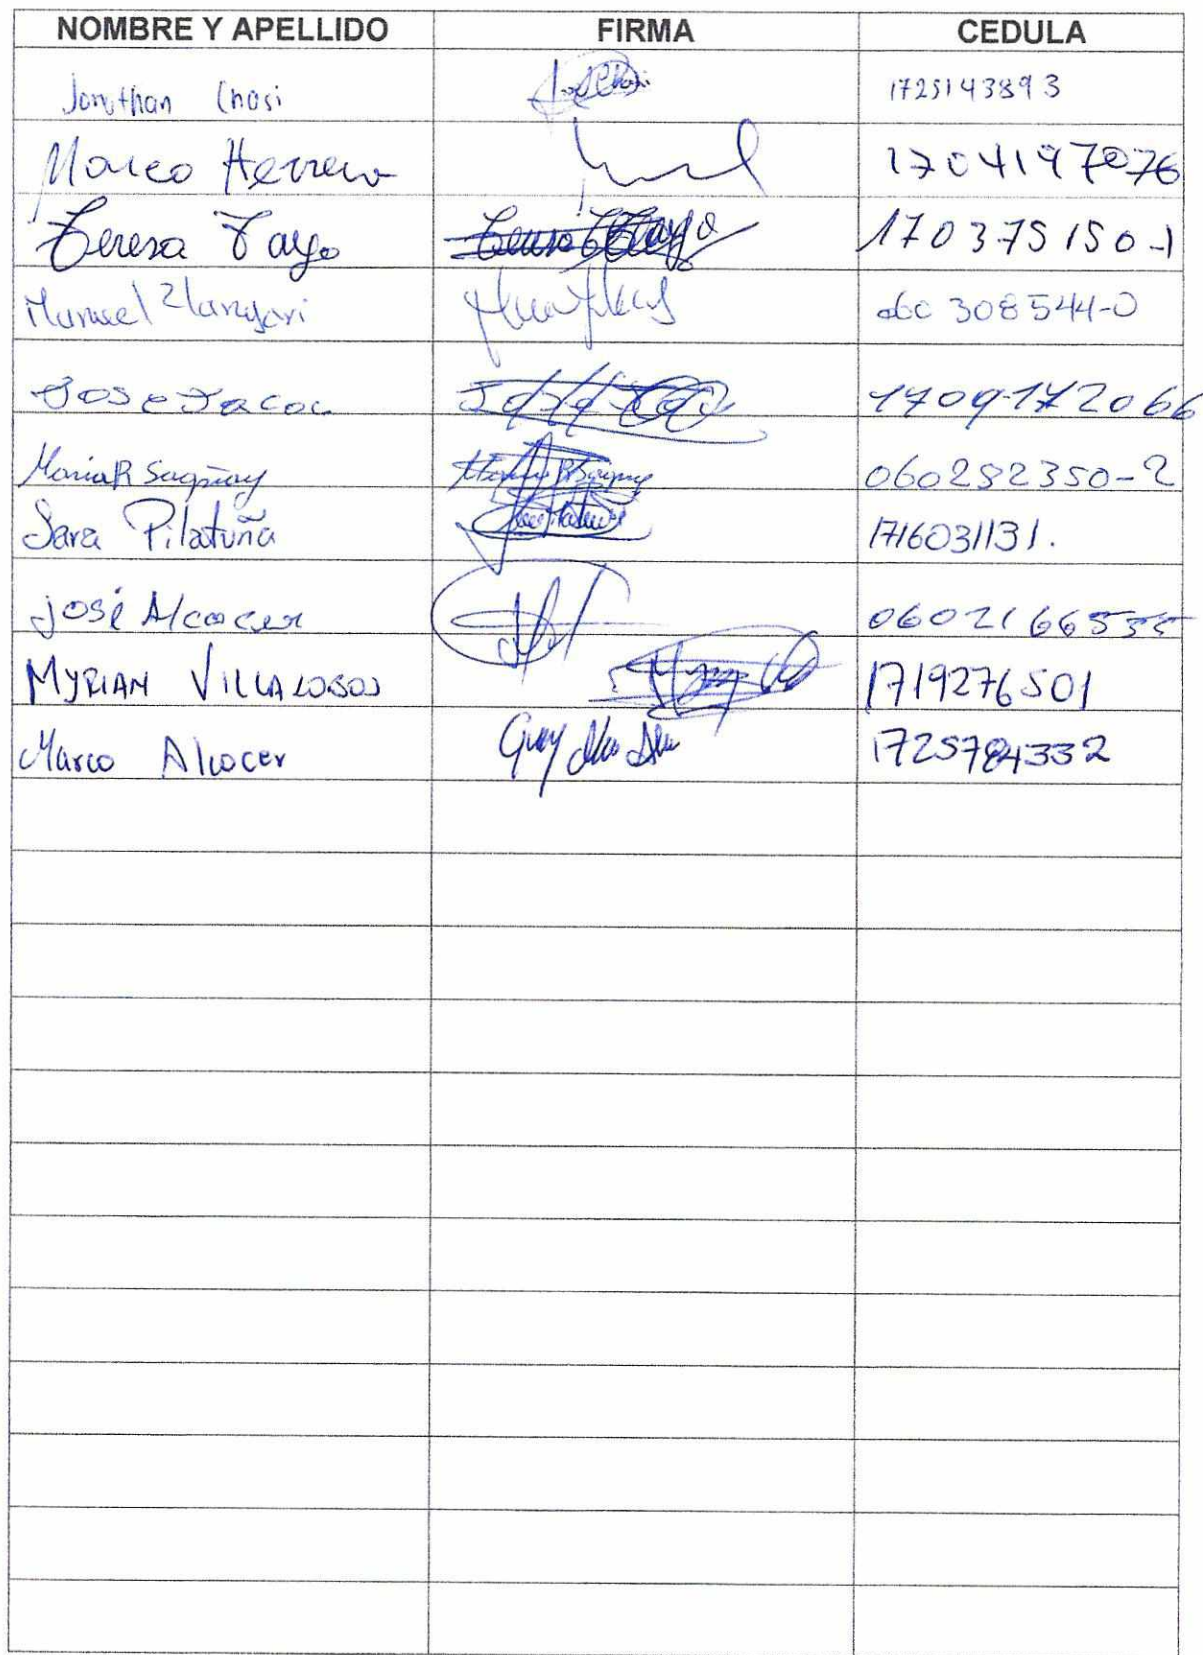 NOMBRE Y APELLIDO FIRMA CEDULA
Jonathan Chasi 1725143893
Marco Herrera 1704197076
Teresa Tayo Teresa Tayo 170375150-1
Manuel Llangari 060308544-0
Jose Jacoc 1709172066
Maria R Sagñay 060282350-2
Sara Pilatuña 1716031131.
José Alcocer 0602166555
MYRIAN VILLALOBOS 1719276501
Marco Alcocer 1725784332